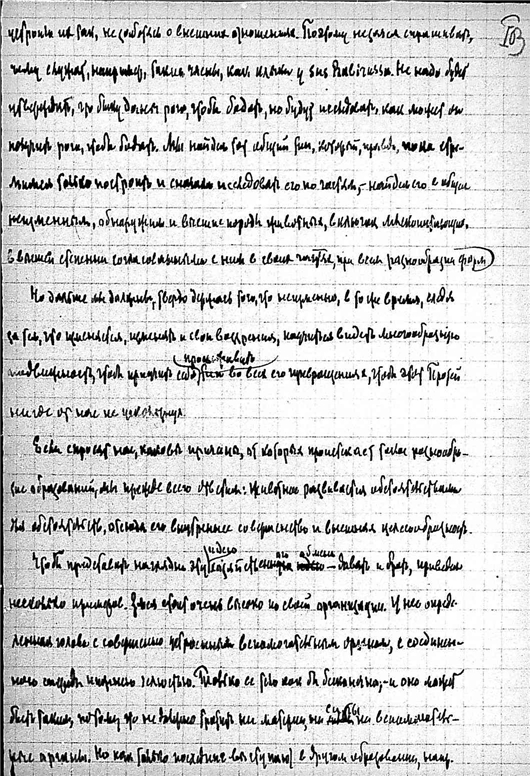 103
устроить их так, не заботясь о внешних отношениях. Поэтому нельзя спрашивать,
чему служат, например, такие члены, как клыки у Sus Babirussa. Не надо будет
утверждать, что быку даны рога, чтобы бодать, но будут исследовать, как может он
получить рога, чтобы бодать. Мы найдем тот общий тип, который, правда, пока стре-
мимся только построить и сначала исследовать его по частям, – найдем его в общем
неизменным, обнаружим и высшие породы животных, включая млекопитающих,
в высшей степени согласованными с ним в своих частях, при всем разнообразии форм
Но дальше мы должны, твердо держась того, что неизменно, в то же время, следя
за тем, что изменяется, изменять и свои воззрения, научиться видеть многообразную
подвижность, чтобы приучить себя проследить тип во всех его превращениях, чтобы этот Протей
нигде от нас не ускользнул.
Если спросят нас, каковы причины, от которых проистекает такое разнообра-
зие образований, мы прежде всего ответим: животное развивается обстоятельствами
для обстоятельств, отсюда его внутреннее совершенство и внешняя целесообразность.
Чтобы представить наглядно эту идею обмена – давать и брать, приведем
несколько примеров. Змея стоит очень высоко по своей организации. У нее опреде-
ленная голова с совершенно устроенным вспомогательным органом, с соединен-
ной спереди нижнею челюстью. Только ее тело как бы бесконечно; – и оно может
быть таким, потому что не должно тратить ни материи, ни силы на вспомогатель-
ные органы. Но как только последние выступают в другом образовании, напр.